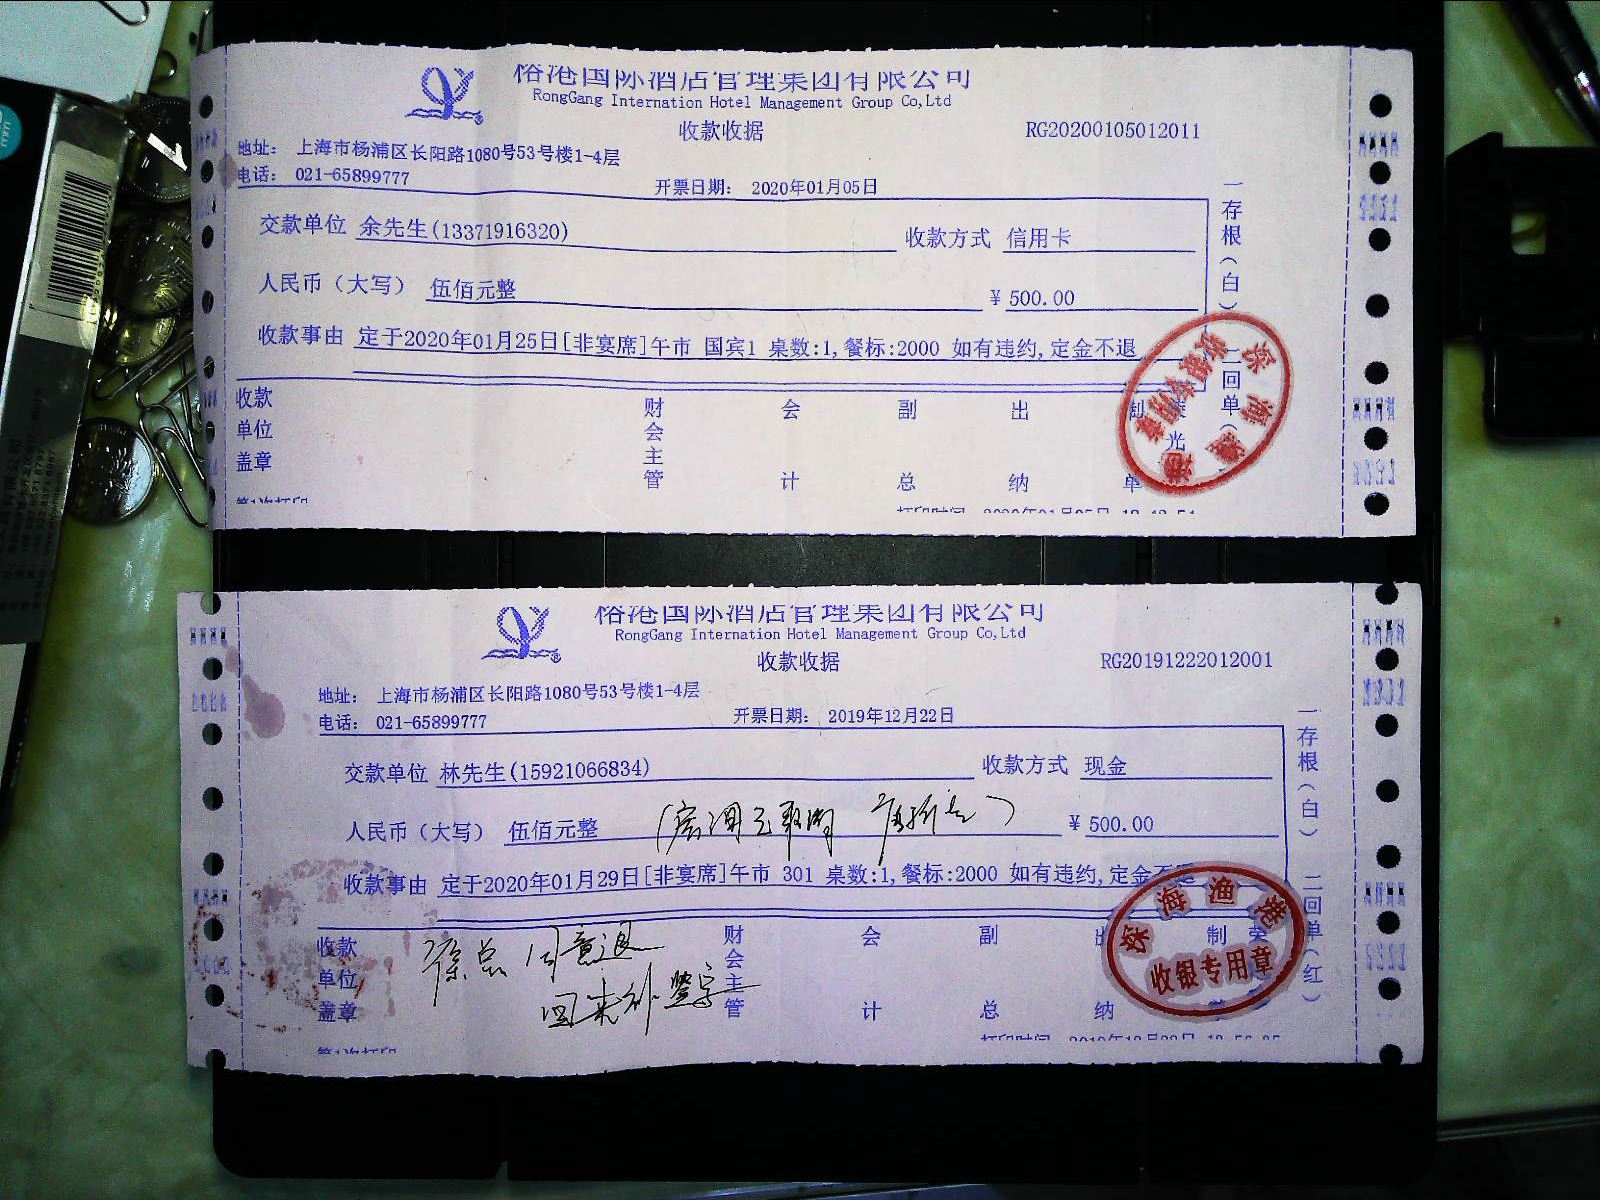 裕港国际酒店管理集团有限公司
RongGang Internation Hotel Management Group Co,Ltd
收款收据
RG20200105012011
地址： 上海市杨浦区长阳路1080号53号楼1-4层
电话： 021-65899777
开票日期： 2020年01月05日
交款单位 余先生(13371916320)
收款方式 信用卡
人民币（大写） 伍佰元整
¥ 500.00
收款事由 定于2020年01月25日[非宴席]午市 国宾1 桌数:1,餐标:2000 如有违约,定金不退
一存根（白）
二回单（
收款单位盖章
财会主管
会计
副总
出纳
制单
深海渔港
收银专用章
第1次打印
打印时间 2020年01月05日
裕港国际酒店管理集团有限公司
RongGang Internation Hotel Management Group Co,Ltd
收款收据
RG20191222012001
地址： 上海市杨浦区长阳路1080号53号楼1-4层
电话： 021-65899777
开票日期： 2019年12月22日
交款单位 林先生(15921066834)
收款方式 现金
人民币（大写） 伍佰元整
¥ 500.00
收款事由 定于2020年01月29日[非宴席]午市 301 桌数:1,餐标:2000 如有违约,定金不退
一存根（白）
二回单（红）
收款单位盖章
徐总同意退
回来补签字
财会主管
会计
副总
出纳
制单
深海渔港
收银专用章
第1次打印
打印时间 2019年12月22日